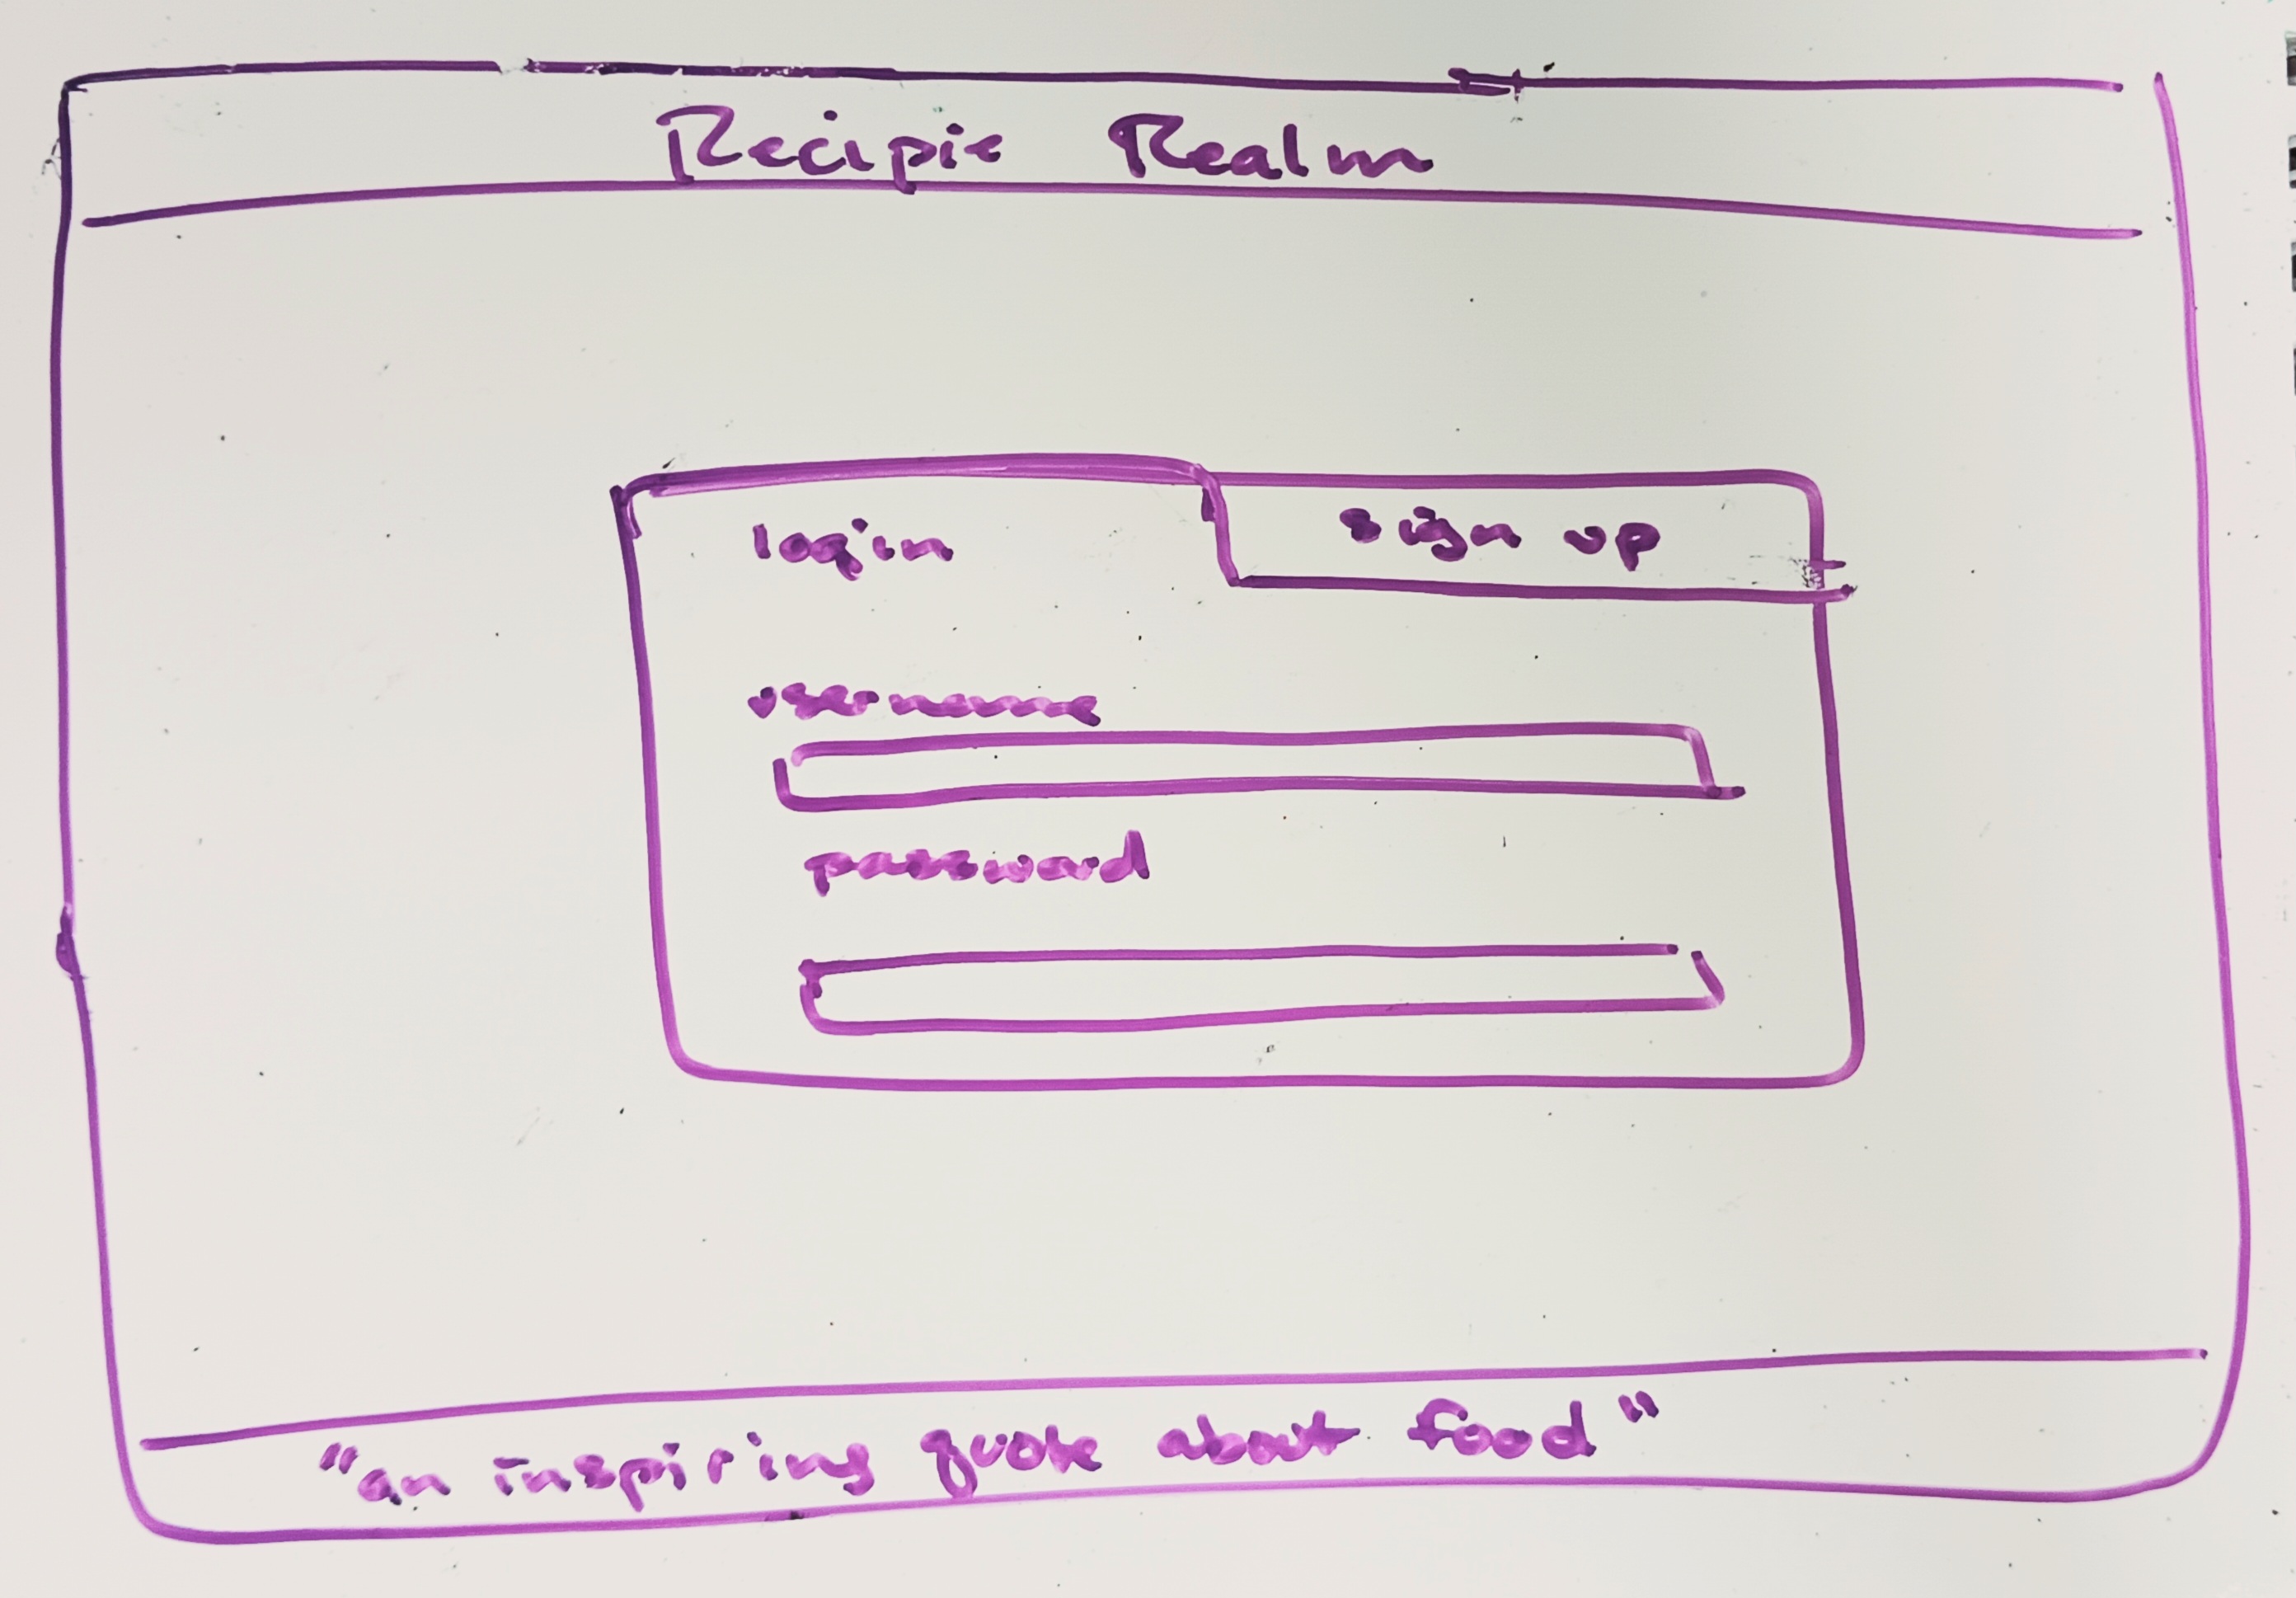 Recipie Realm
login
sign up
username
password
"an inspiring quote about food"